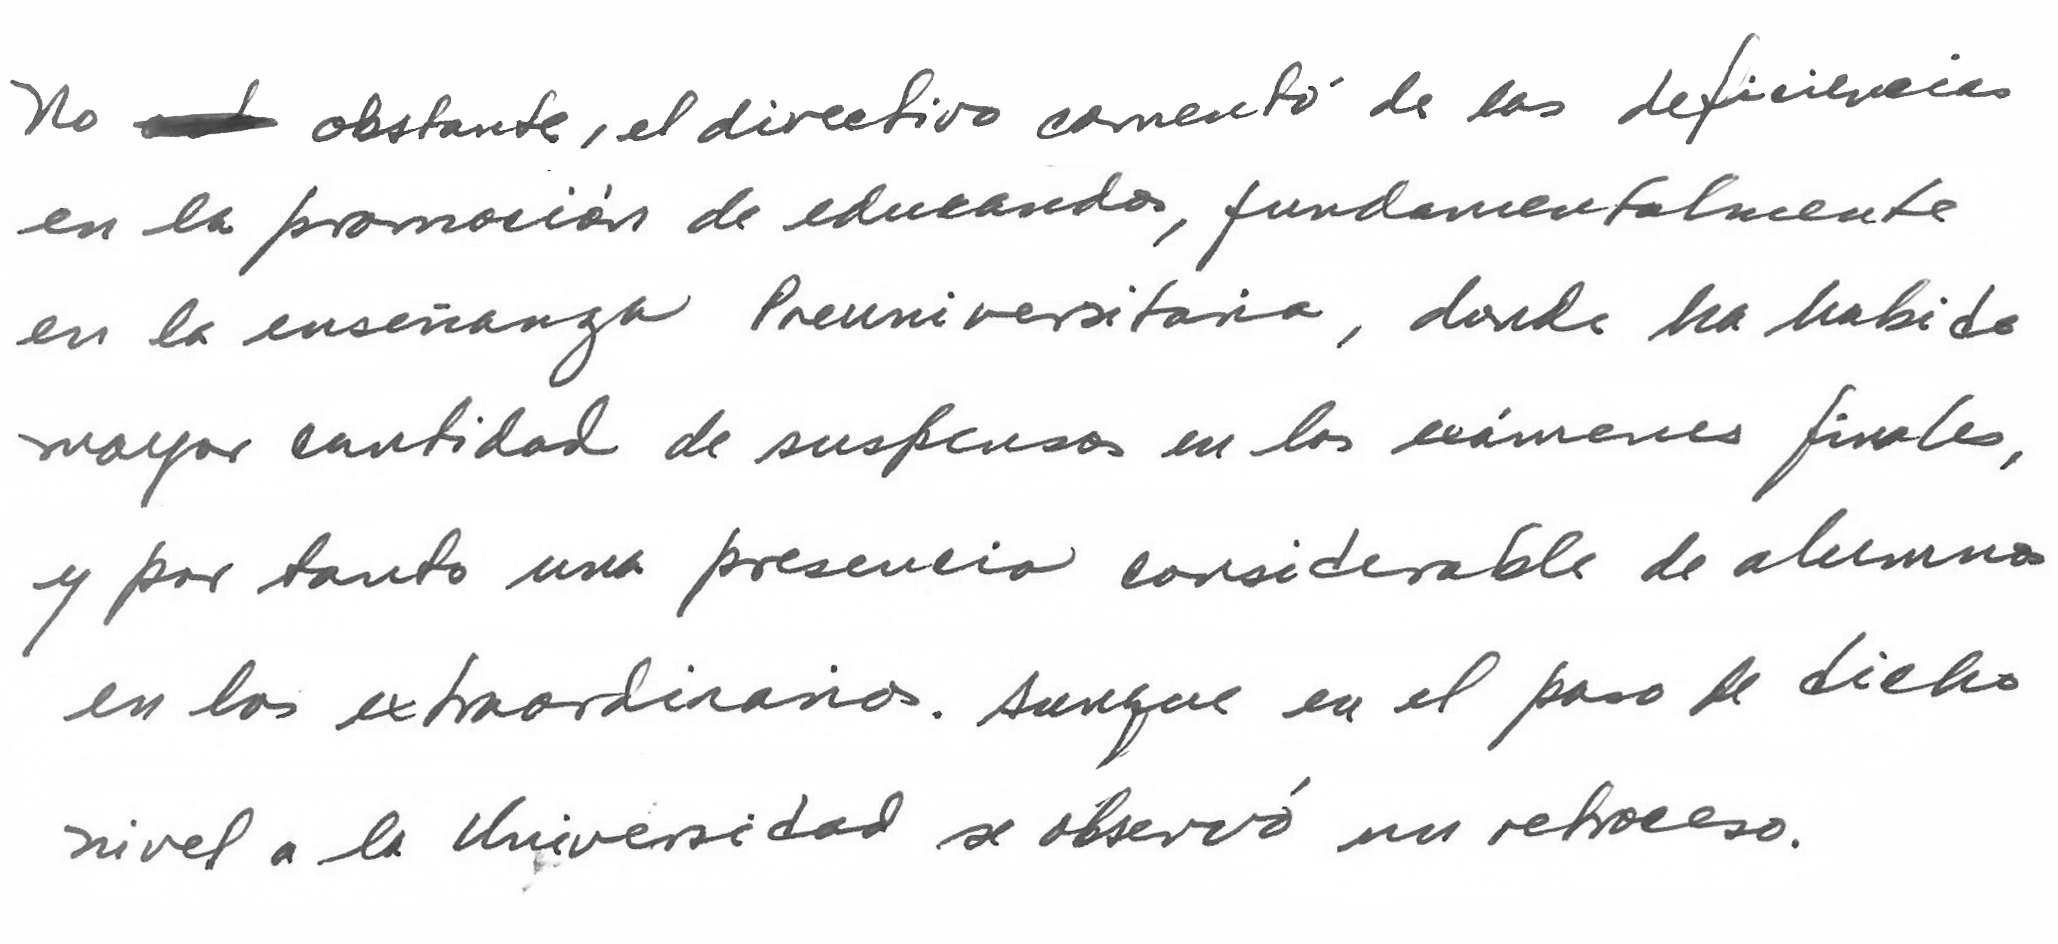 No obstante, el directivo comentó de las deficiencias
en la promoción de educandos, fundamentalmente
en la enseñanza Preuniversitaria, donde ha habido
mayor cantidad de suspensos en los exámenes finales,
y por tanto una presencia considerable de alumnos
en los extraordinarios. Aunque en el paso de dicho
nivel a la Universidad se observó un retroceso.